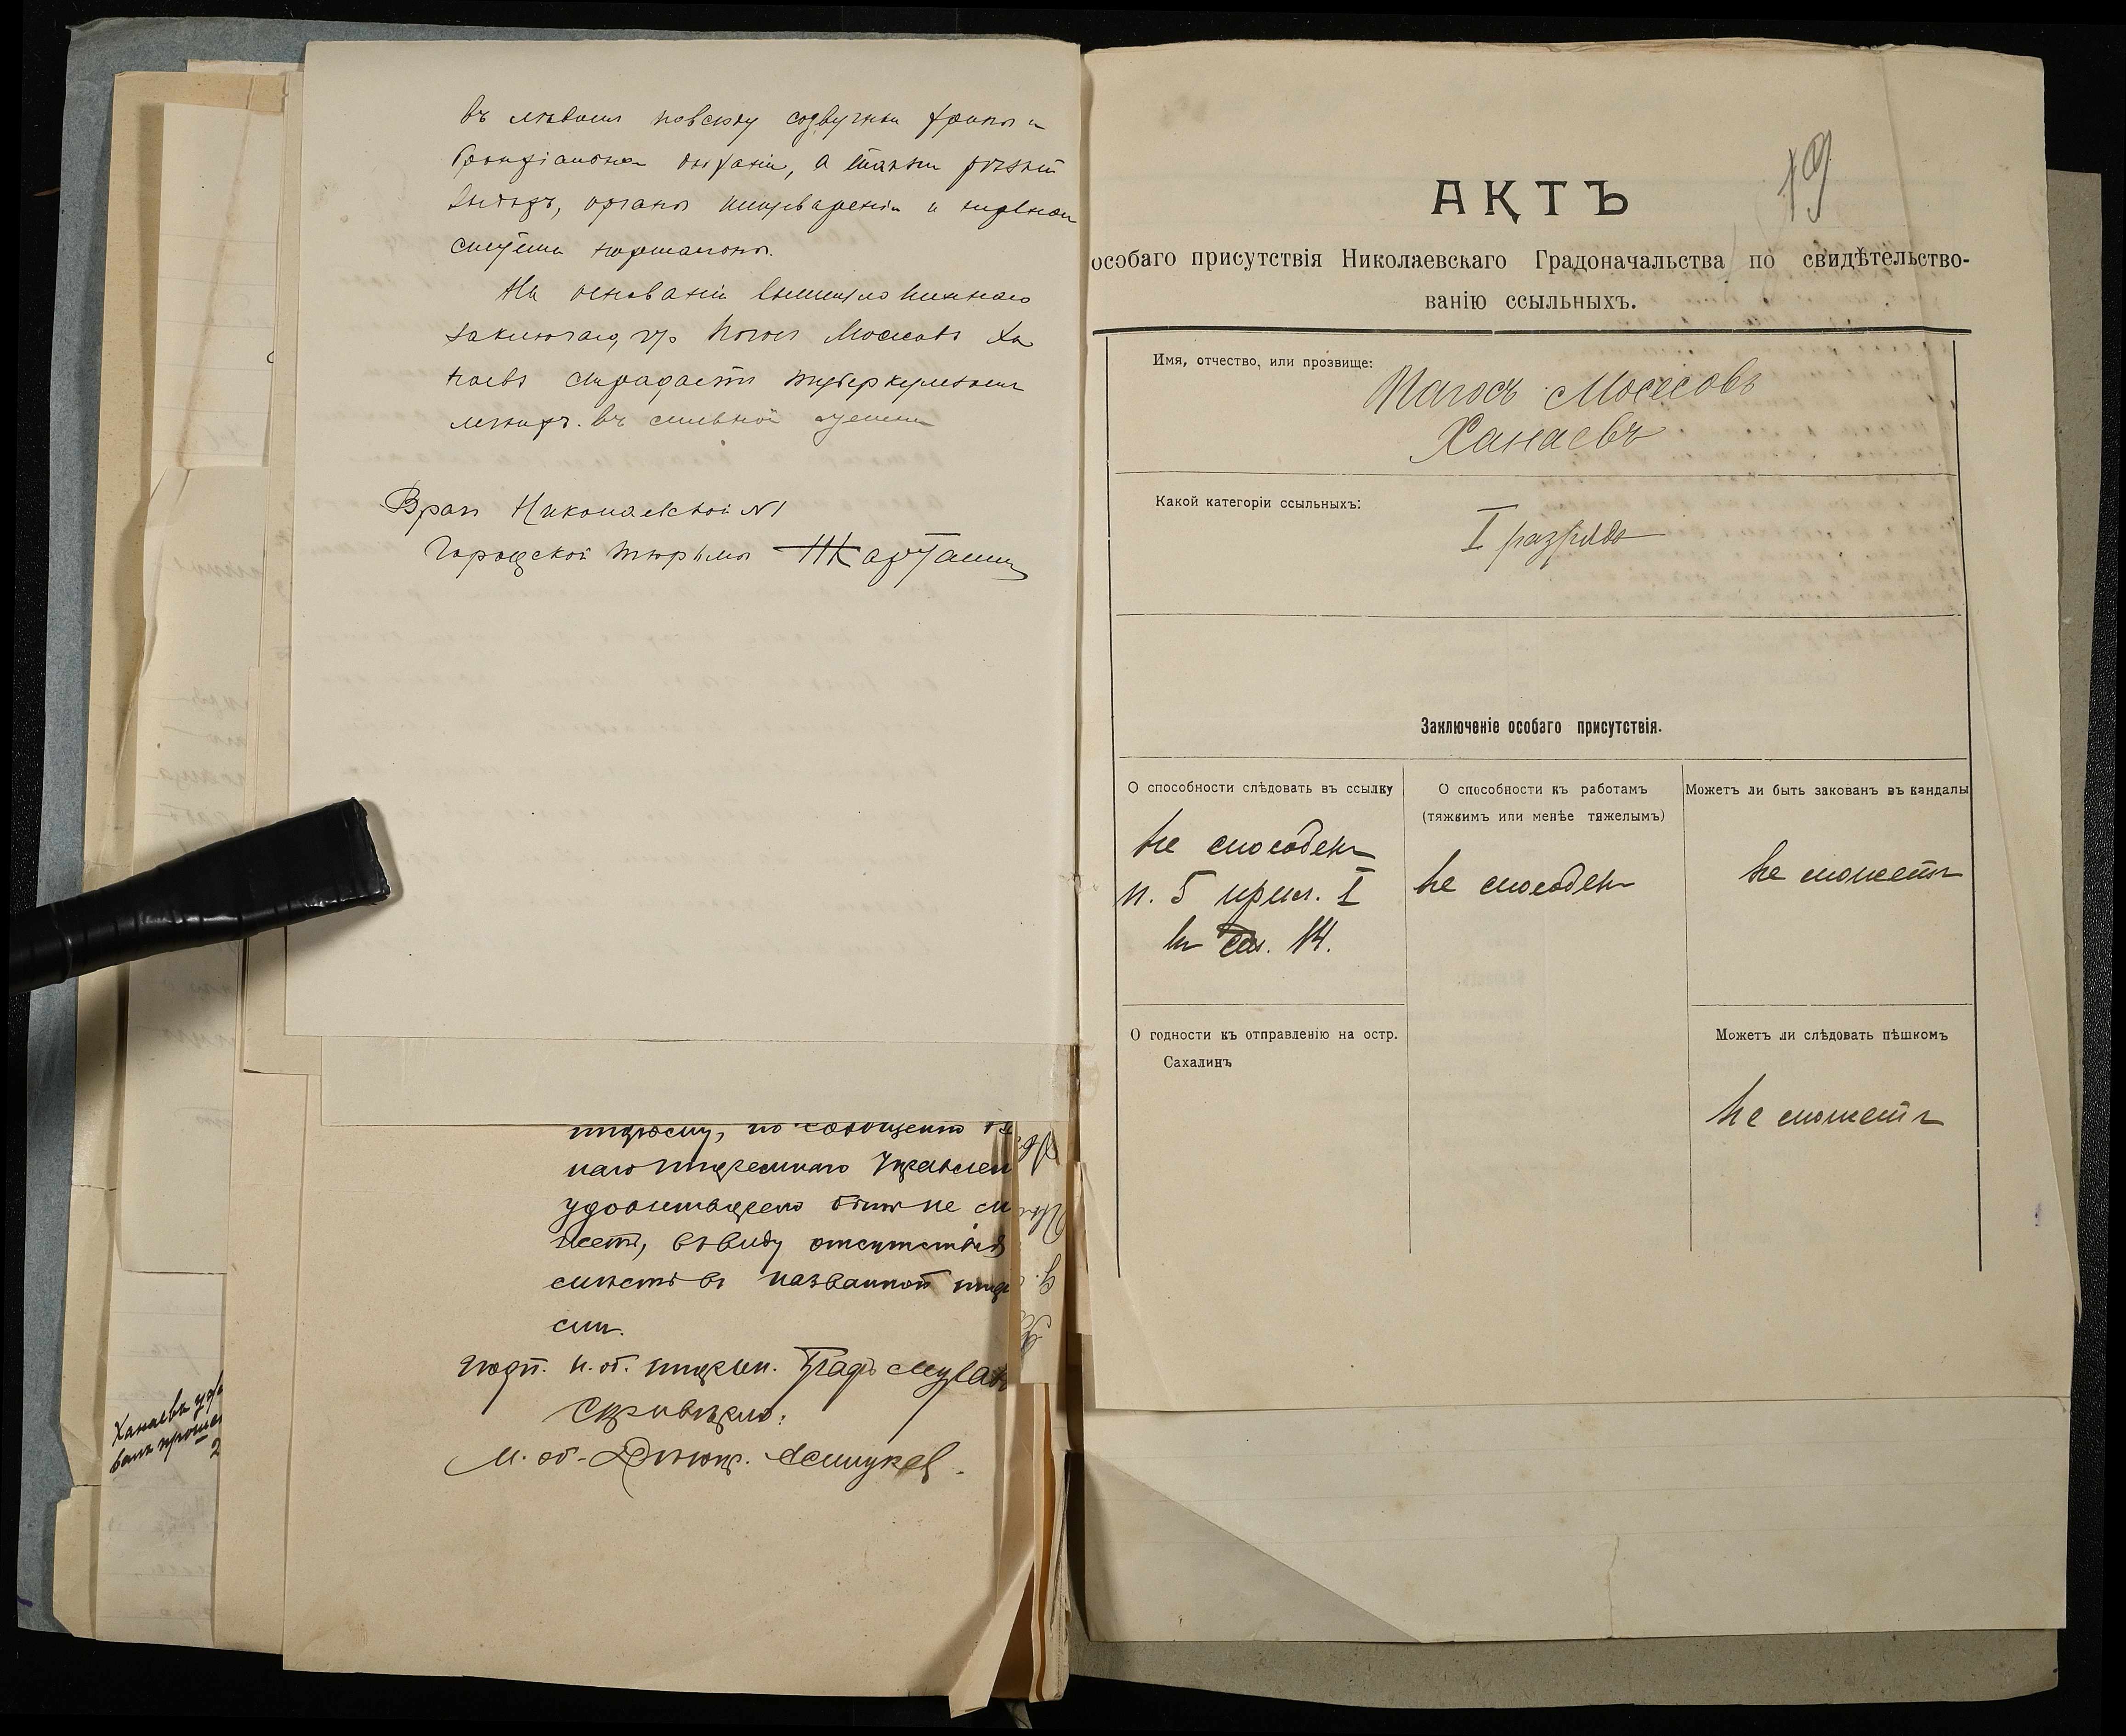 въ лѣвомъ повсюду созвучные хрипы и
бронхіальное дыханіе, а также рѣзкій
выдохъ, органы пищеваренія и нервная
система нормальны.
На основаніи вышеизложеннаго
заключаю, что Погосъ Мосесовъ Ха
наевъ страдаетъ туберкулезомъ
легкихъ въ сильной степени
Врачъ Николаевской №1
Городской тюрьмы
тюрьму, по сообщенію
наго тюремнаго Управлен
удовлетворено быть не мо
жетъ, въ виду отсутствія
мѣстъ въ названной тюрь
мѣ.
Подп. И. об. тюрем.
Скрѣпилъ:
И. об. Дѣлопр.
Ханаевъ
19
АКТЪ
особаго присутствія Николаевскаго Градоначальства по свидѣтельство-
ванію ссыльныхъ.
Имя, отчество, или прозвище:
Погосъ Мосесовъ
Ханаевъ
Какой категоріи ссыльныхъ:
I разряда
Заключеніе особаго присутствія.
О способности слѣдовать въ ссылку
не способенъ
п. 5 прил. I
къ ст. 14.
О способности къ работамъ
(тяжкимъ или менѣе тяжелымъ)
не способенъ
Можетъ ли быть закованъ въ кандалы
не можетъ
О годности къ отправленію на остр.
Сахалинъ
Можетъ ли слѣдовать пѣшкомъ
не можетъ